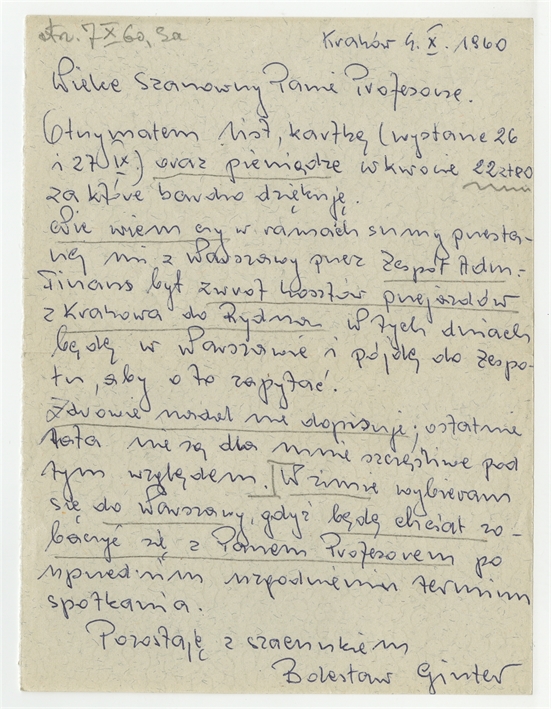 otrz. 7 X 60, Sa
Kraków 4. X. 1960
Wielce Szanowny Panie Profesorze.
Otrzymałem list, kartkę (wysłane 26
i 27 IX.) oraz pieniądze w kwocie 22
za które bardzo dziękuję.
Nie wiem czy w ramach sumy przesła-
nej mi z Warszawy przez Zespół Adm.-
Finans był zwrot kosztów przejazdów
z Krakowa do Rydna. W tych dniach
będę w Warszawie i pójdę do Zespo-
łu, aby o to zapytać.
Zdrowie nadal nie dopisuje; ostatnie
lata nie są dla mnie szczęśliwe pod
tym względem. W zimie wybieram
się do Warszawy, gdyż będę chciał zo-
baczyć się z Panem Profesorem po
uprzednim uzgodnieniu terminu
spotkania.
Pozostaję z szacunkiem
Bolesław Ginter